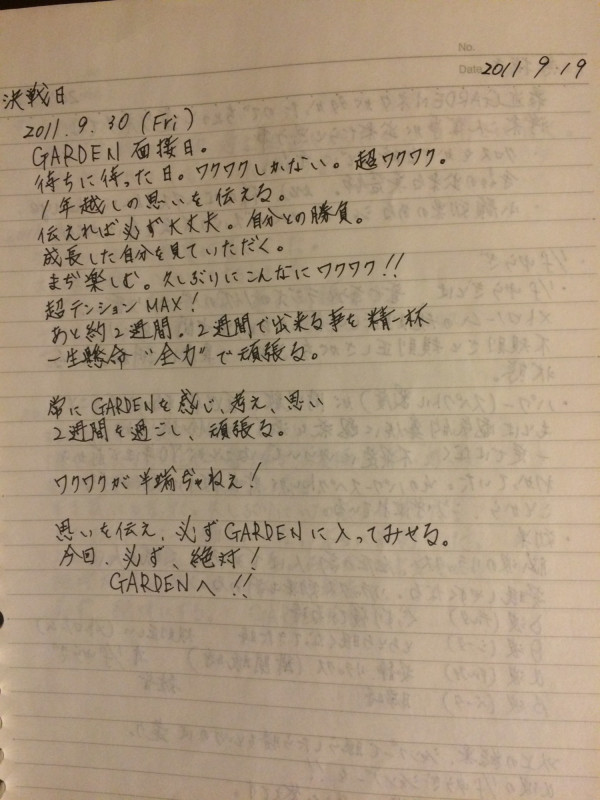 No.
Date 2011.9.19
決戦日
2011.9.30(Fri)
GARDEN 面接日。
待ちに待った日。ワクワクしかない。超ワクワク。
1年越しの思いを伝える。
伝えれば必ず大丈夫。自分との勝負。
成長した自分を見ていただく。
まぢ楽しむ。久しぶりにこんなにワクワク!!
超テンションMAX!
あと約2週間。2週間で出来る事を精一杯
一生懸命“全力”で頑張る。
常にGARDENを感じ、考え、思い
2週間を過ごし、頑張る。
ワクワクが半端ぢゃねぇ!
思いを伝え、必ずGARDENに入ってみせる。
今回、必ず、絶対!
GARDENへ!!